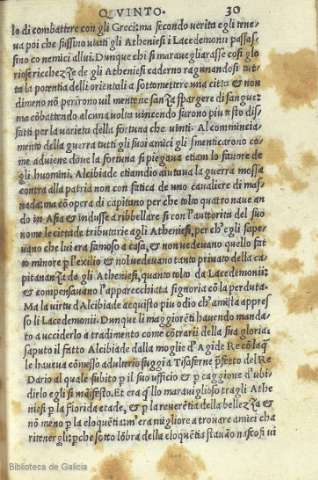 QVINTO. 30
lo di combattere con gli Greci: ma secondo verita egli teneua
ua poi che fussino uiati gli Atheniesi i Lacedemonii passas
sino co nemici alliui. Dunque chi si marauegliarasse cosi glo
de gli Atheniesi ragunandosi tut
ta la potentia delli orientali a sottomettere una citta & non
dimeno nõ perirono uilmente ne sanza spargere di sangue:
ma cõbattendo alcuna uolta uincendo furono piu tosto dis
fatti per la uarieta della fortuna che uinti. Al comincia
mento della guerra tutti gli suoi amici gli smenticarono co
me aduiene doue la fortuna si piegaua etiam lo fauore de
gli huomini. Alcibiade etiamdio aiutaua la guerra mossa
contra alla patria non con fatica de uno caualiere di mas
nada: ma cõ opera di capitano per che tolto quattro naue an
do in Asia & indusse a ribellare si con l'autorita del suo
nome le citta de tributarie agli Atheniesi, per ch'egli saper
uano che lui era famoso a casa, & non uedeuano quello fat
to minore p l'exilio & nol uedeuano tanto priuato della ca
pitananza da gli Atheniesi, quanto tolto da Lacedemonii:
& compensauano l'apparecchiata signoria cõ la perduta.
Ma la uirtu d'Alcibiade acquisto piu odio ch'amista appres
so li Lacedemonii. Dunque li maggiorēti hauendo manda
to a ucciderlo a tradimento come cõtrarii della sua gloria:
saputo il fatto Alcibiade dalla moglie d'Agide Re cõ laqle
le hauea cõmesso adulterio fuggi a Tisaferne pfetto del Re
Dario al quale subito p il suo ufficio & p caggione d'ubi-
dirlo egli si manifesto. Et era q̃llo marauiglioso tra gli Athe
niesi p la florida etade, & p la reuerētia della bellezza &
nõ meno p la eloquētia: m'era migliore a trouare amici cha
ritenergli: pche sotto lõbra della eloquētia stauão nascosi ui
Biblioteca de Galicia